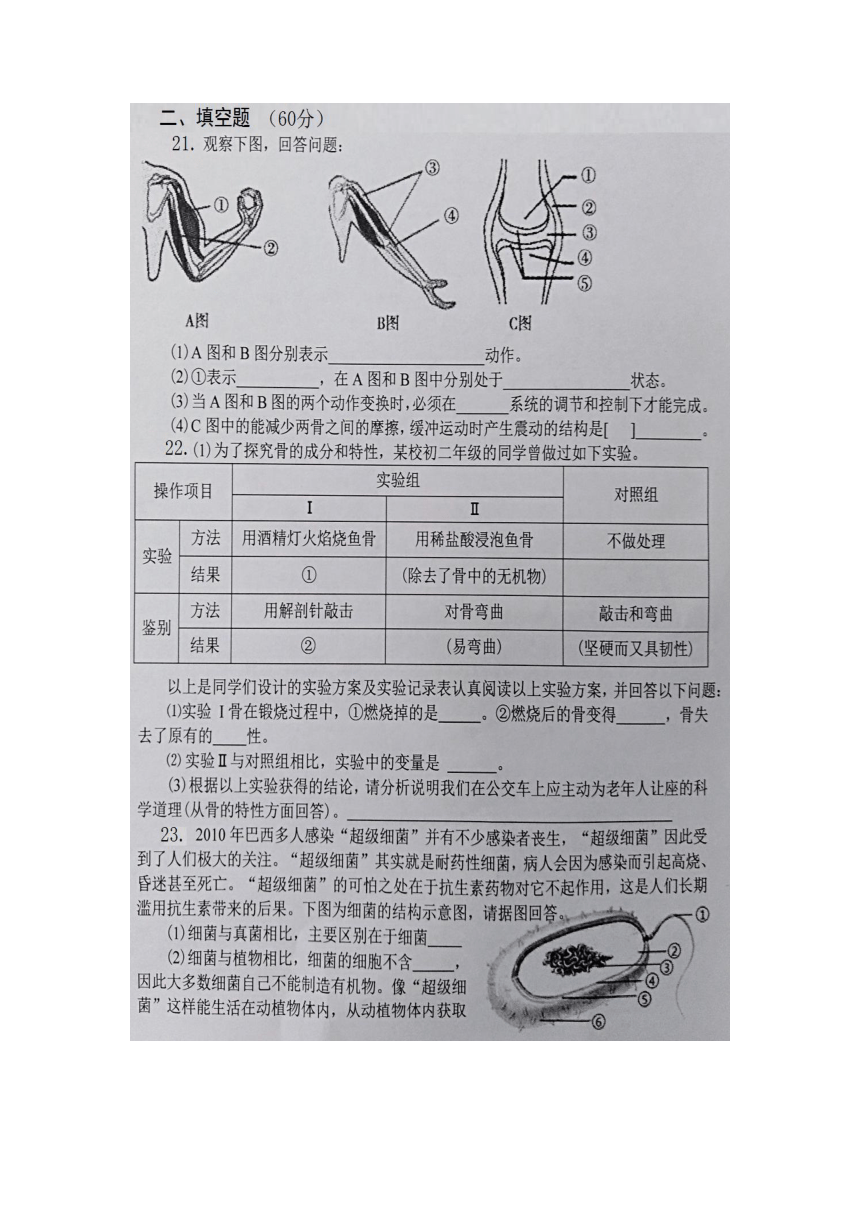 二、填空题 （60分）
21. 观察下图，回答问题：
① ② ③ ④ ① ② ③ ④ ⑤
A图 B图 C图
⑴A 图和 B 图分别表示 动作。
⑵①表示 ，在 A 图和 B 图中分别处于 状态。
⑶当 A 图和 B 图的两个动作变换时,必须在 系统的调节和控制下才能完成。
⑷C 图中的能减少两骨之间的摩擦,缓冲运动时产生震动的结构是[ ] 。
22.⑴为了探究骨的成分和特性，某校初二年级的同学曾做过如下实验。
操作项目 实验组 对照组
Ⅰ Ⅱ
实验 方法 用酒精灯火焰烧鱼骨 用稀盐酸浸泡鱼骨 不做处理
结果 ① (除去了骨中的无机物)
鉴别 方法 用解剖针敲击 对骨弯曲 敲击和弯曲
结果 ② (易弯曲) (坚硬而又具韧性)
以上是同学们设计的实验方案及实验记录表认真阅读以上实验方案，并回答以下问题：
⑴实验 Ⅰ骨在锻烧过程中，①燃烧掉的是 。②燃烧后的骨变得 ，骨失
去了原有的 性。
⑵ 实验Ⅱ与对照组相比，实验中的变量是 。
⑶根据以上实验获得的结论，请分析说明我们在公交车上应主动为老年人让座的科
学道理(从骨的特性方面回答)。
23. 2010 年巴西多人感染“超级细菌”并有不少感染者丧生，“超级细菌”因此受
到了人们极大的关注。“超级细菌”其实就是耐药性细菌，病人会因为感染而引起高烧、
昏迷甚至死亡。“超级细菌”的可怕之处在于抗生素药物对它不起作用，这是人们长期
滥用抗生素带来的后果。下图为细菌的结构示意图，请据图回答。
⑴细菌与真菌相比，主要区别在于细菌
⑵细菌与植物相比，细菌的细胞不含 ，
因此大多数细菌自己不能制造有机物。像“超级细
菌”这样能生活在动植物体内，从动植物体内获取
① ② ③ ④ ⑤ ⑥